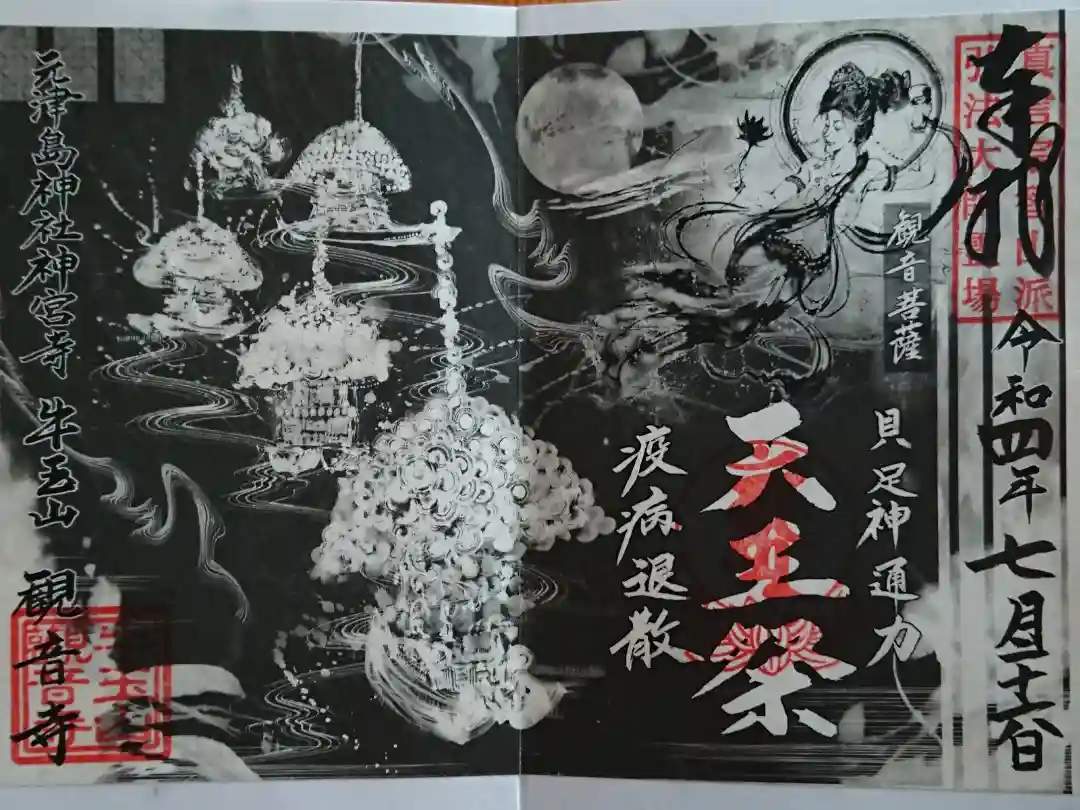 奉拝 令和四年七月十六日
眞言宗智山派
弘法大師霊場
観音菩薩
具足神通力
天王祭
疫病退散
元津島神社神宮寺 牛玉山 観音寺